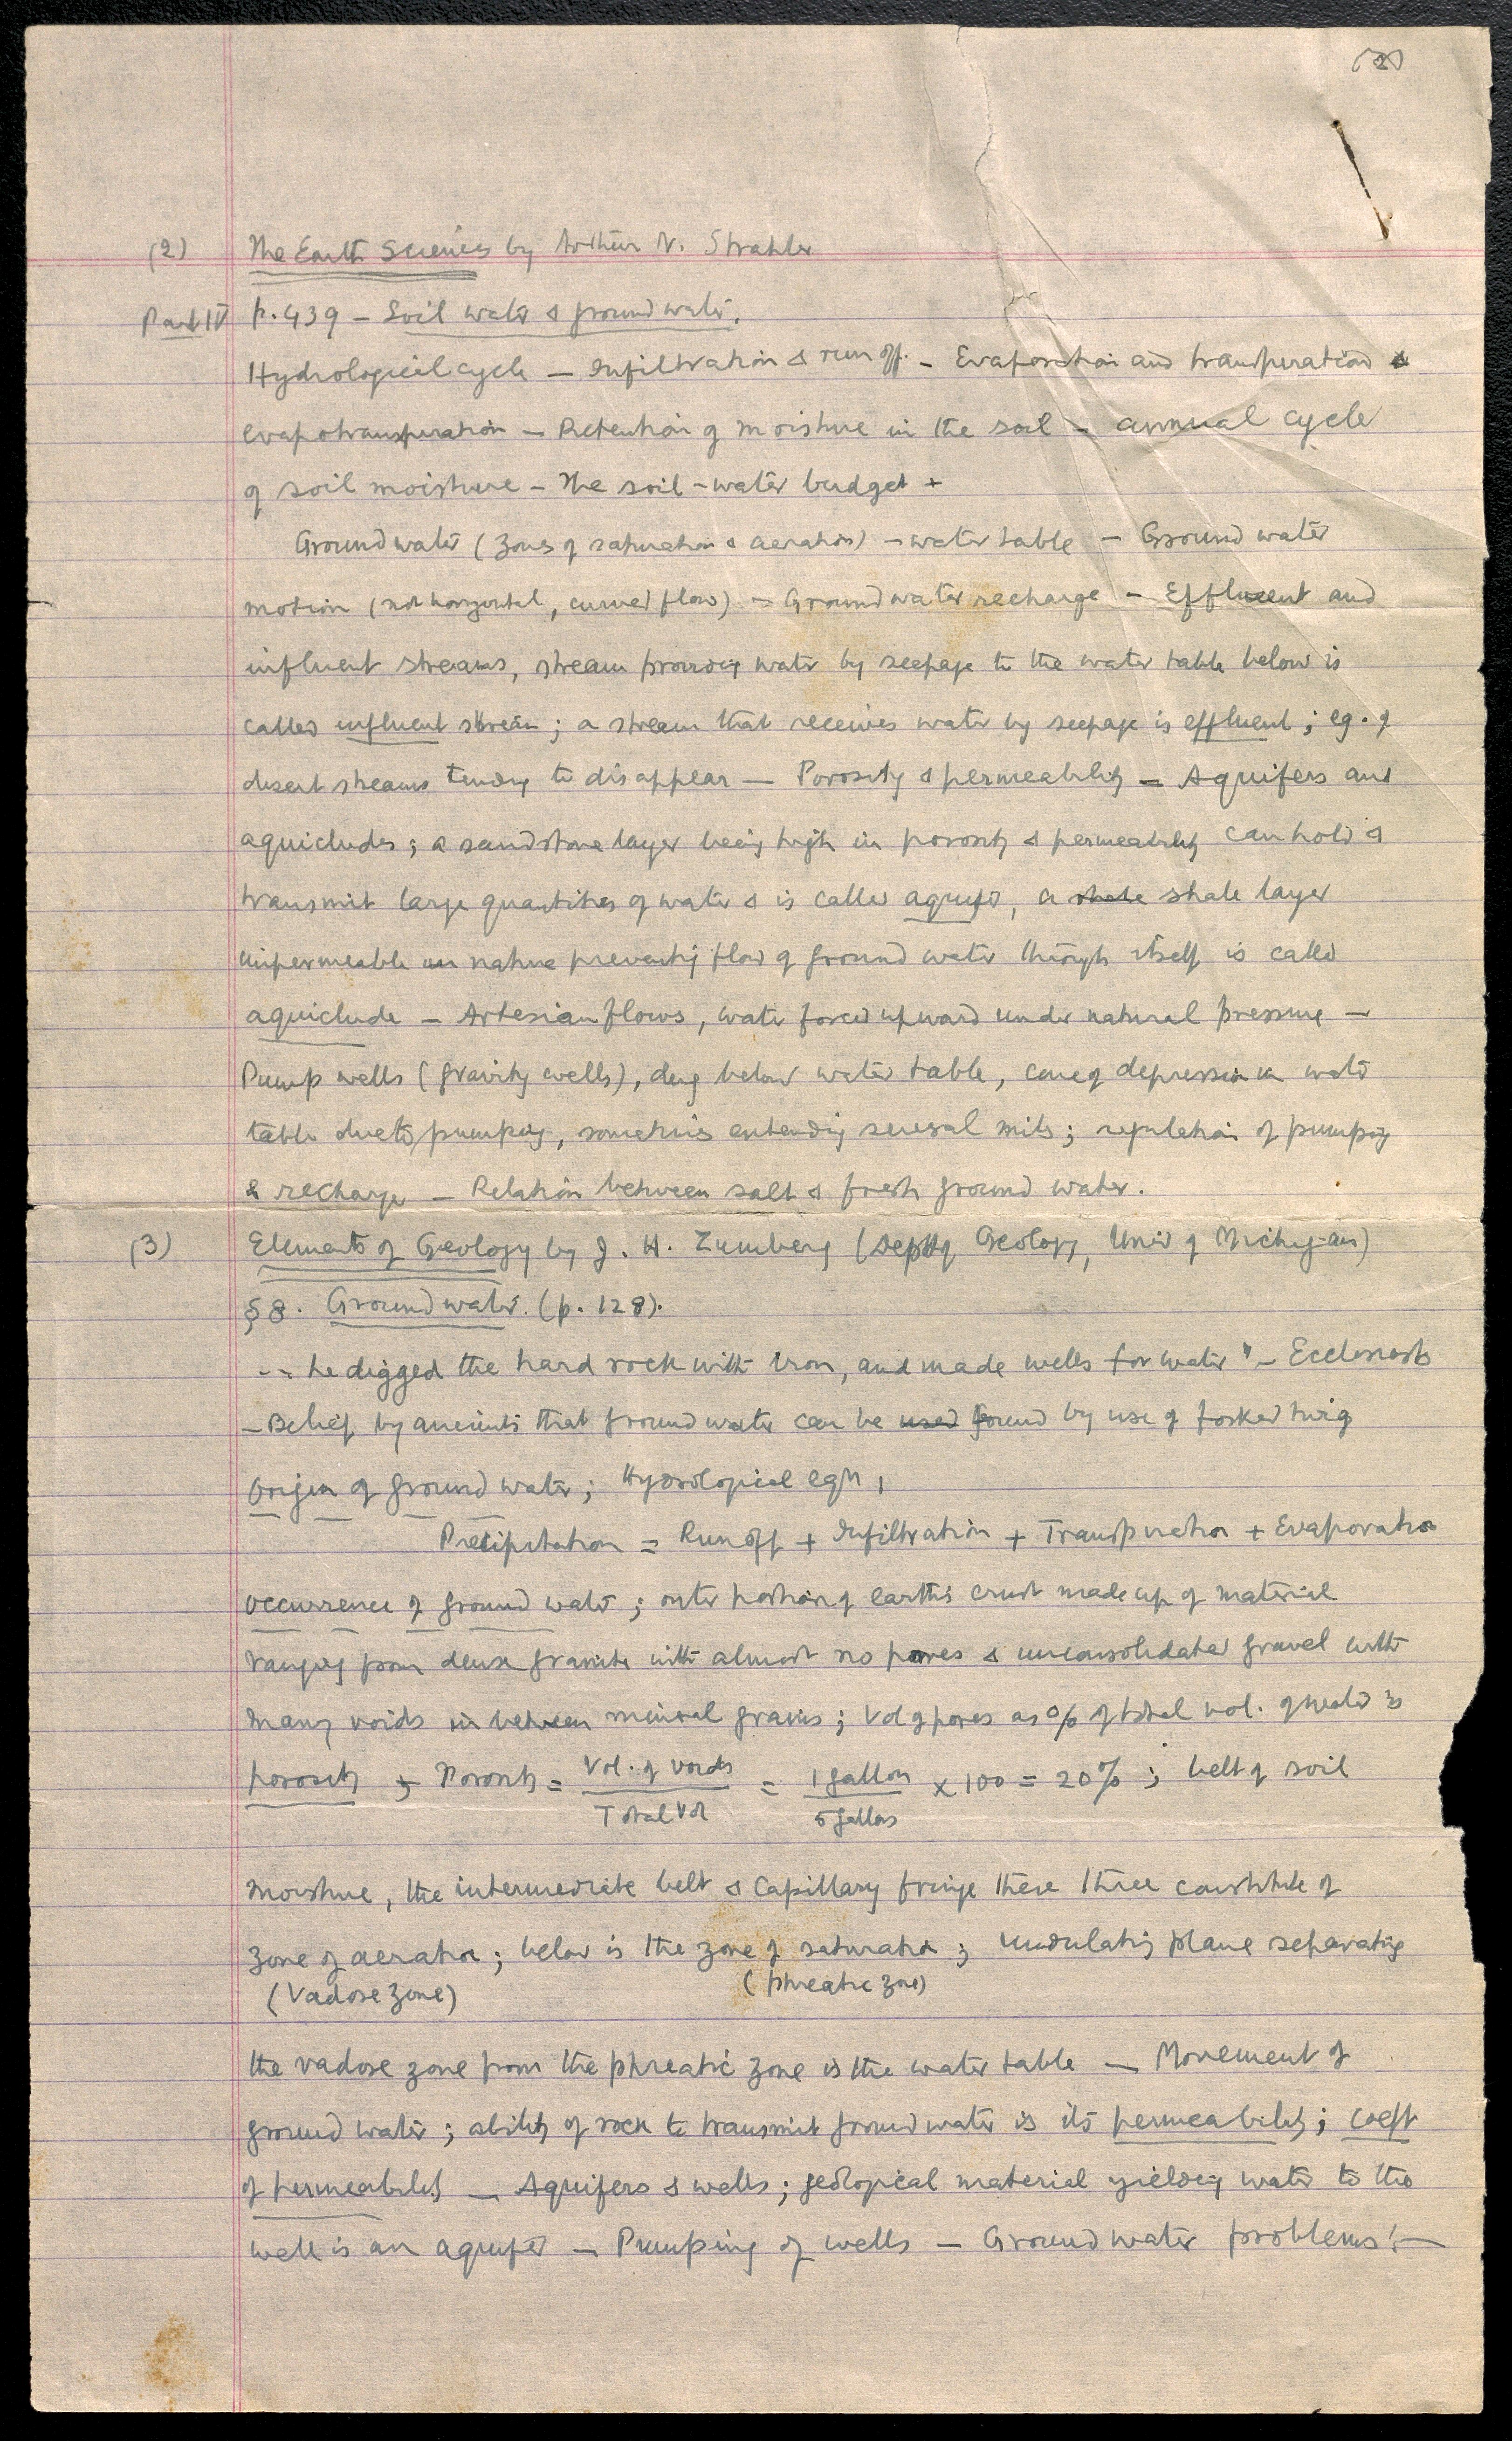 (2)
(2) The Earth Sciences by Arthur N. Strahler
Part IV p. 439 – Soil water & ground water.
Hydrological cycle – Infiltration & run off. – Evaporation and transpiration &
evapotranspiration – Retention of moisture in the soil – annual cycle
of soil moisture – The soil-water budget +
Ground water (zones of saturation & aeration) – water table – Ground water
motion (not horizontal, curved flow) – Ground water recharge – Effluent and
influent streams, stream providing water by seepage to the water table below is
called influent stream ; a stream that receives water by seepage is effluent ; eg. of
desert streams tending to disappear — Porosity & permeability – Aquifers and
aquicludes ; a sandstone layer being high in porosity & permeability can hold &
transmit large quantities of water & is called aquifer, a shale shale layer
impermeable in nature preventing flow of ground water through itself is called
aquiclude – Artesian flows, water forced upward under natural pressure –
Pump wells (gravity wells), dug below water table, cone of depression in water
table due to pumping, sometimes extending several miles ; regulation of pumping
& recharge – Relation between salt & fresh ground water.
(3) Elements of Geology by J. H. Zumberg (Dept of Geology, Univ of Michigan)
§ 8. Ground water. (p. 128).
-- he digged the hard rock with iron, and made wells for water" –
– Belief by ancients that ground water can be used found by use of forked twig
Origin of ground water ; Hydrological eqn,
Precipitation = Runoff + Infiltration + Transpiration + Evaporation
Occurrence of ground water ; outer portion of earth's crust made up of material
ranging from dense granite with almost no pores & unconsolidated gravel with
many voids in between mineral grains ; Vol of pores as % of total vol. of water is
porosity ; Porosity = Vol. of voids / Total Vol = 1 gallon / 5 gallons × 100 = 20% ; belt of soil
moisture, the intermediate belt & Capillary fringe these three constitute of
zone of aeration ; below is the zone of saturation ; undulating plane separating
(Vadose zone) (phreatic zone)
the vadose zone from the phreatic zone is the water table – Movement of
ground water ; ability of rock to transmit ground water is its permeability ; coeft
of permeability – Aquifers & wells ; geological material yielding water to the
well is an aquifer – Pumping of wells – Ground water problems :—